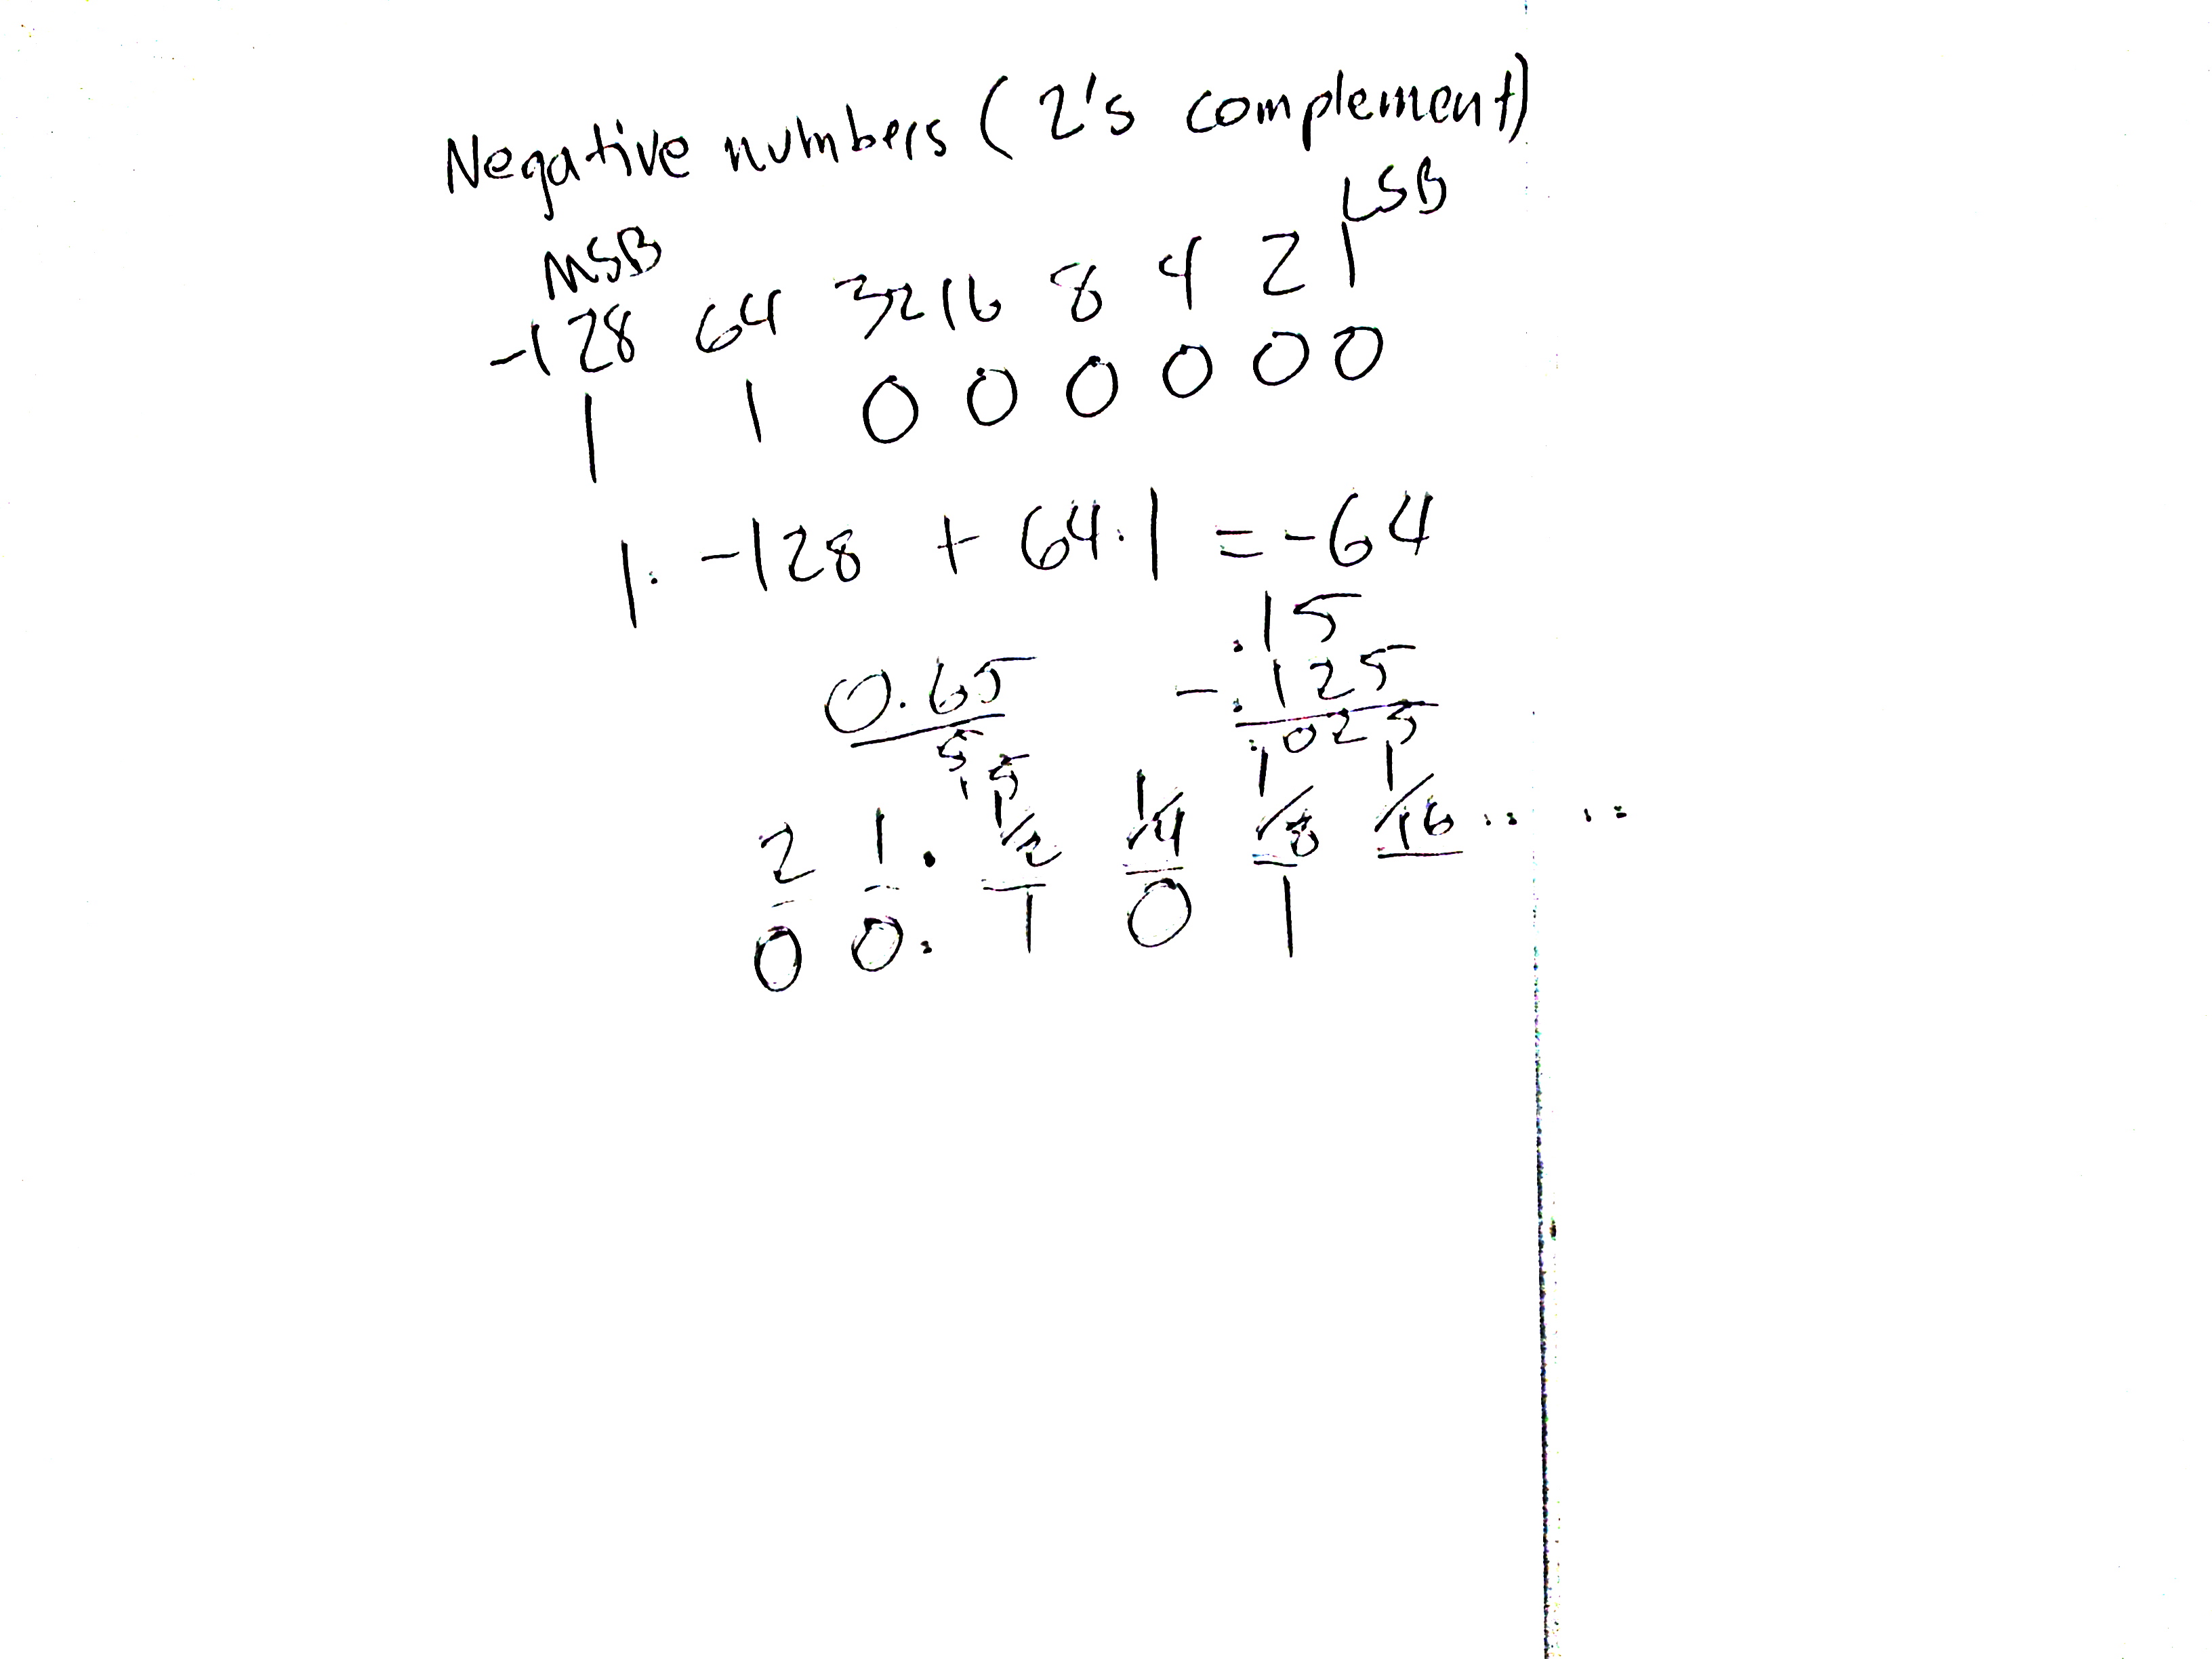 Negative numbers (2's complement)
MSB LSB
-128 64 32 16 8 4 2 1
1 1 0 0 0 0 0 0
1. -128 + 64.1 = -64
.15
0.65 -.125
.5 .025
.15
2 1 . 1/2 1/4 1/8 1/16 .. ..
0 0. 1 0 1